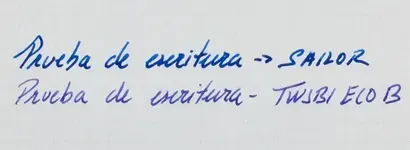 Prueba de escritura -> SAILOR
Prueba de escritura - TWSBI ECO B